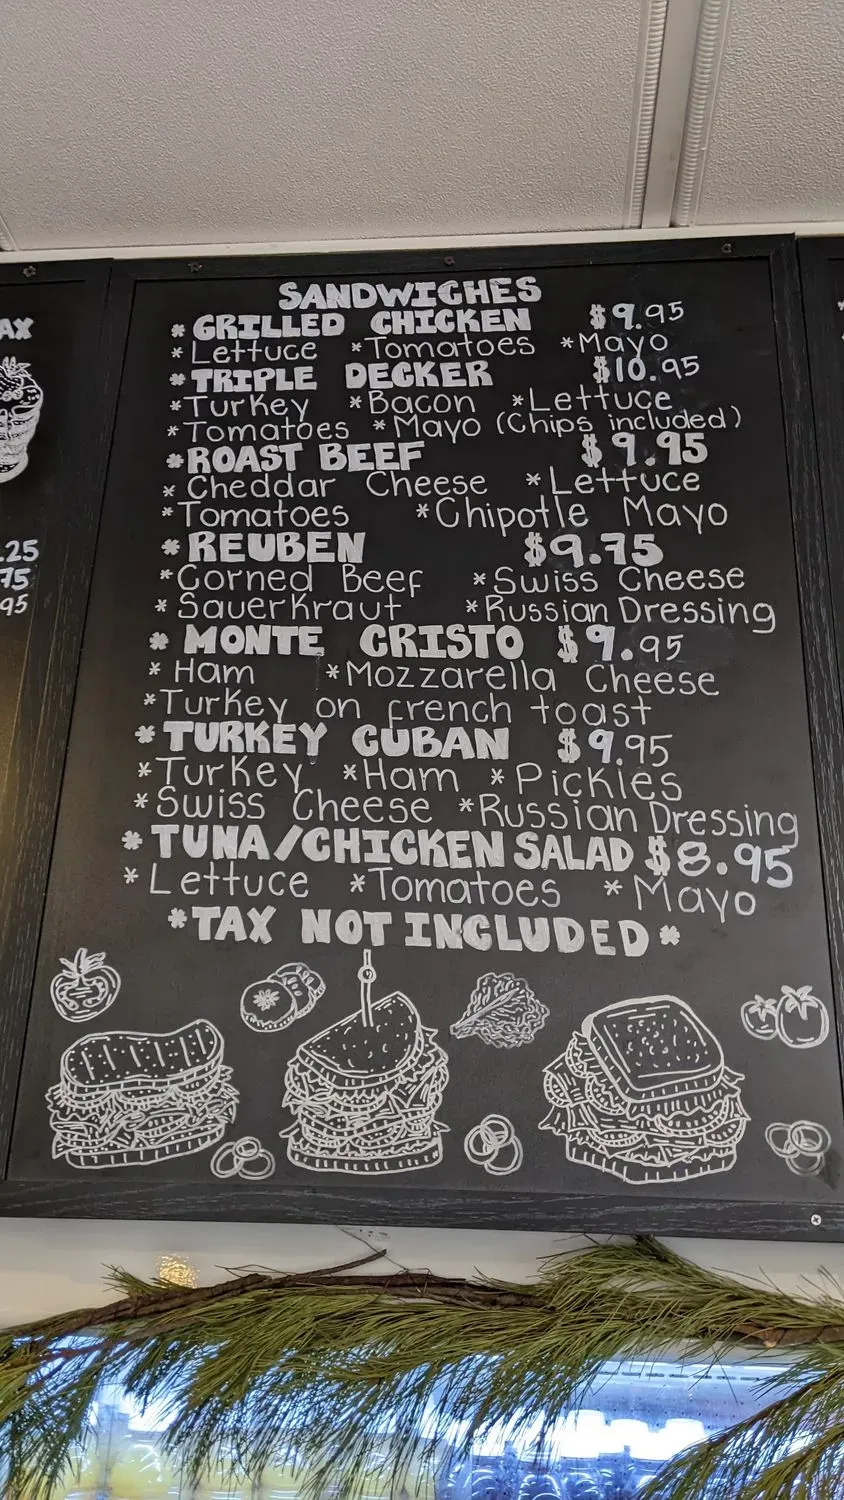 SANDWICHES
*GRILLED CHICKEN $9.95
*Lettuce *Tomatoes *Mayo
*TRIPLE DECKER $10.95
*Turkey *Bacon *Lettuce
*Tomatoes *Mayo (Chips included)
*ROAST BEEF $9.95
*Cheddar Cheese *Lettuce
*Tomatoes *Chipotle Mayo
*REUBEN $9.75
*Corned Beef *Swiss Cheese
*Sauerkraut *Russian Dressing
*MONTE CRISTO $9.95
*Ham *Mozzarella Cheese
*Turkey on french toast
*TURKEY CUBAN $9.95
*Turkey *Ham *Pickles
*Swiss Cheese *Russian Dressing
*TUNA/CHICKEN SALAD $8.95
*Lettuce *Tomatoes *Mayo
*TAX NOT INCLUDED*
AX
.25
75
95